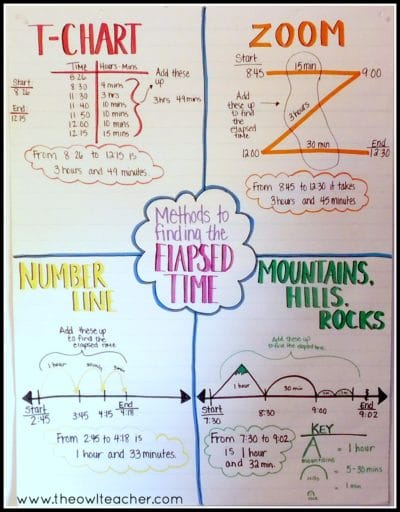 T-CHART
Start
8:26
End
12:15
TIME Hours-Mins
8:26
8:30 4 mins
11:30 3 hrs
11:40 10 mins
11:50 10 mins
12:00 10 mins
12:15 15 mins
Add these
up
3hrs 49mins
From 8:26 to 12:15 is
3 hours and 49 minutes.
ZOOM
Start
8:45
15 min
9:00
Add these
up to find
the elapsed
time
3 hours
30 min
12:00
End
12:30
From 8:45 to 12:30 it takes
3 hours and 45 minutes
Methods to
finding the
ELAPSED
TIME
NUMBER
LINE
Add these up
to find the
elapsed time
1 hour
Start
2:45
3:45
4:15
End
4:18
From 2:45 to 4:18 is
1 hour and 33 minutes.
MOUNTAINS,
HILLS,
ROCKS
Add these up
to find the elapsed time.
1 hour
30 min
Start
7:30
8:30
9:00
End
9:02
From 7:30 to 9:02
is 1 hour
and 32 min.
KEY
mountains
= 1 hour
hills
= 5-30 mins
rock
= 1 min
www.theowlteacher.com